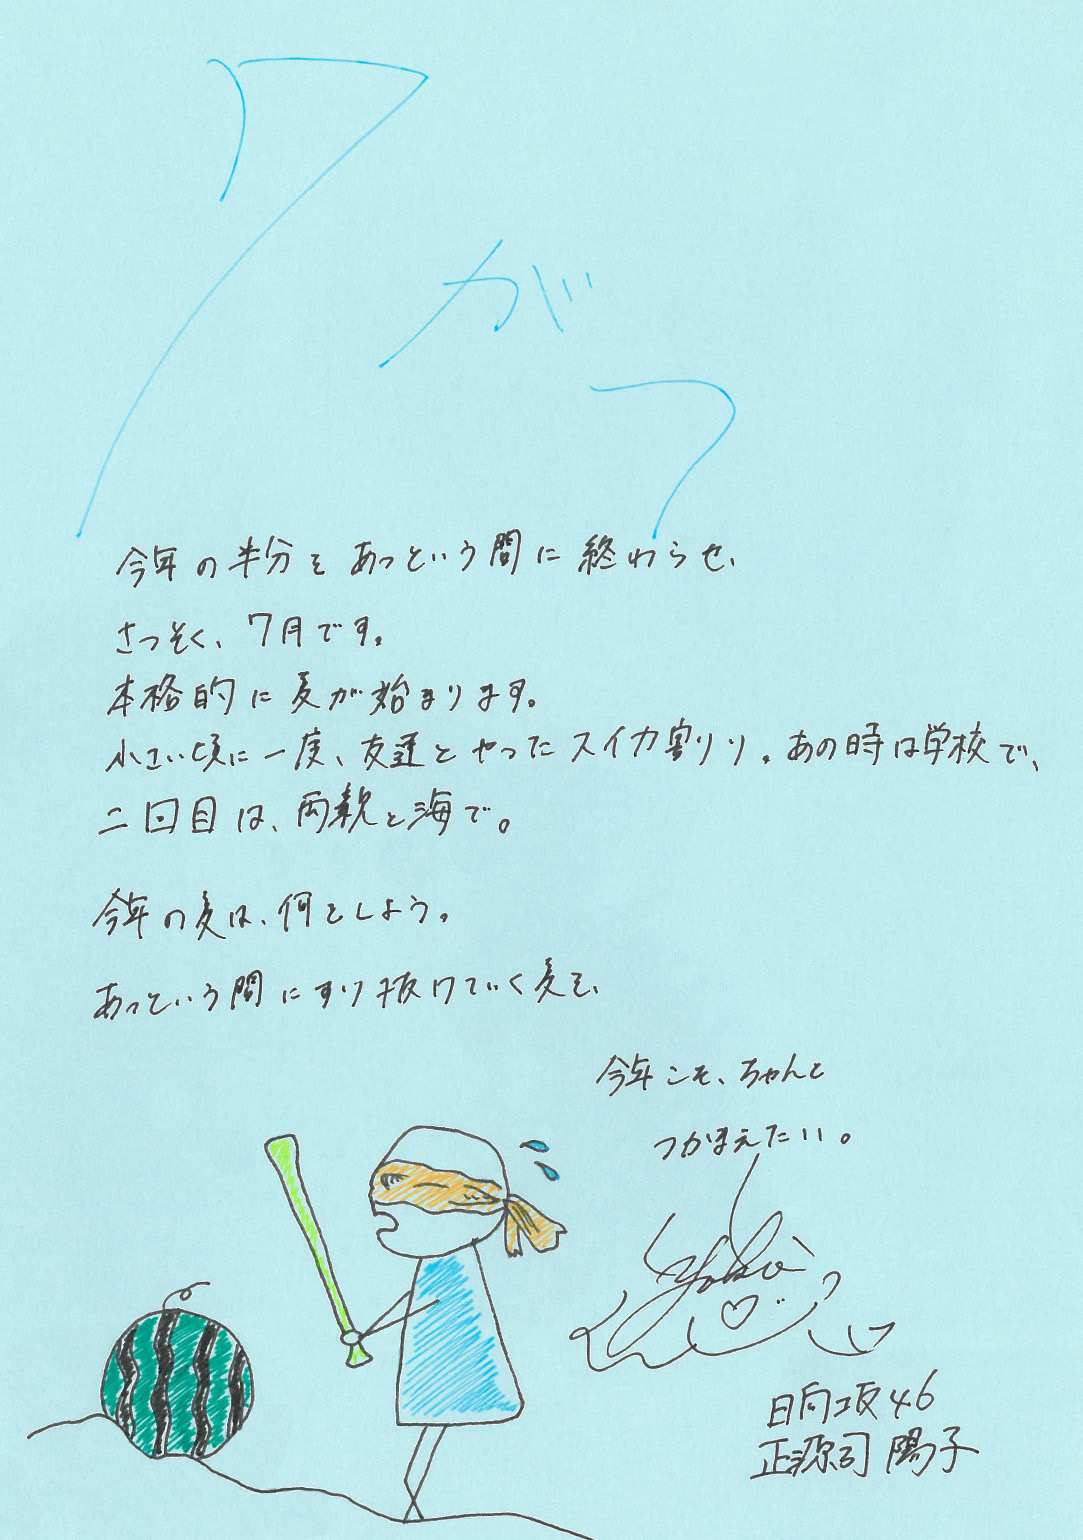 7がつ
今年の半分をあっという間に終わらせ、
さっそく、7月です。
本格的に夏が始まります。
小さい頃に一度、友達とやったスイカ割り。あの時は学校で、
二回目は、両親と海で。
今年の夏は、何をしよう。
あっという間にすり抜けていく夏を、
今年こそ、ちゃんと
つかまえたい。
Yoko
日向坂46
正源司陽子